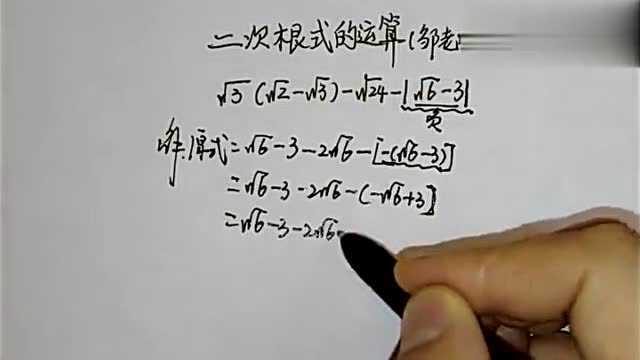 二次根式的运算(邹老
√3(√2-√3)-√24-|√6-3|
负
解:原式=√6-3-2√6-[-(√6-3)]
=√6-3-2√6-(-√6+3]
=√6-3-2√6